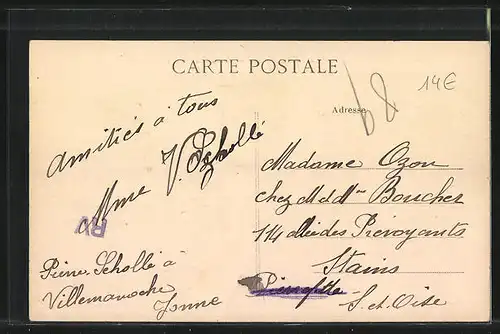 CARTE POSTALE
Adresse
68
14€
Amitiés à tous
Mme V. Scholle
RV
Pierre Scholle à
Villemanoche
Yonne
Madame Ozou
chez M et Mme Boucher
114 allée des Prévoyants
Stains
Pierrefitte
S. et Oise